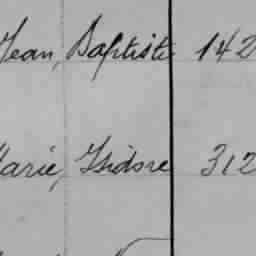 Jean, Baptiste 142
Marie, Isidore 312